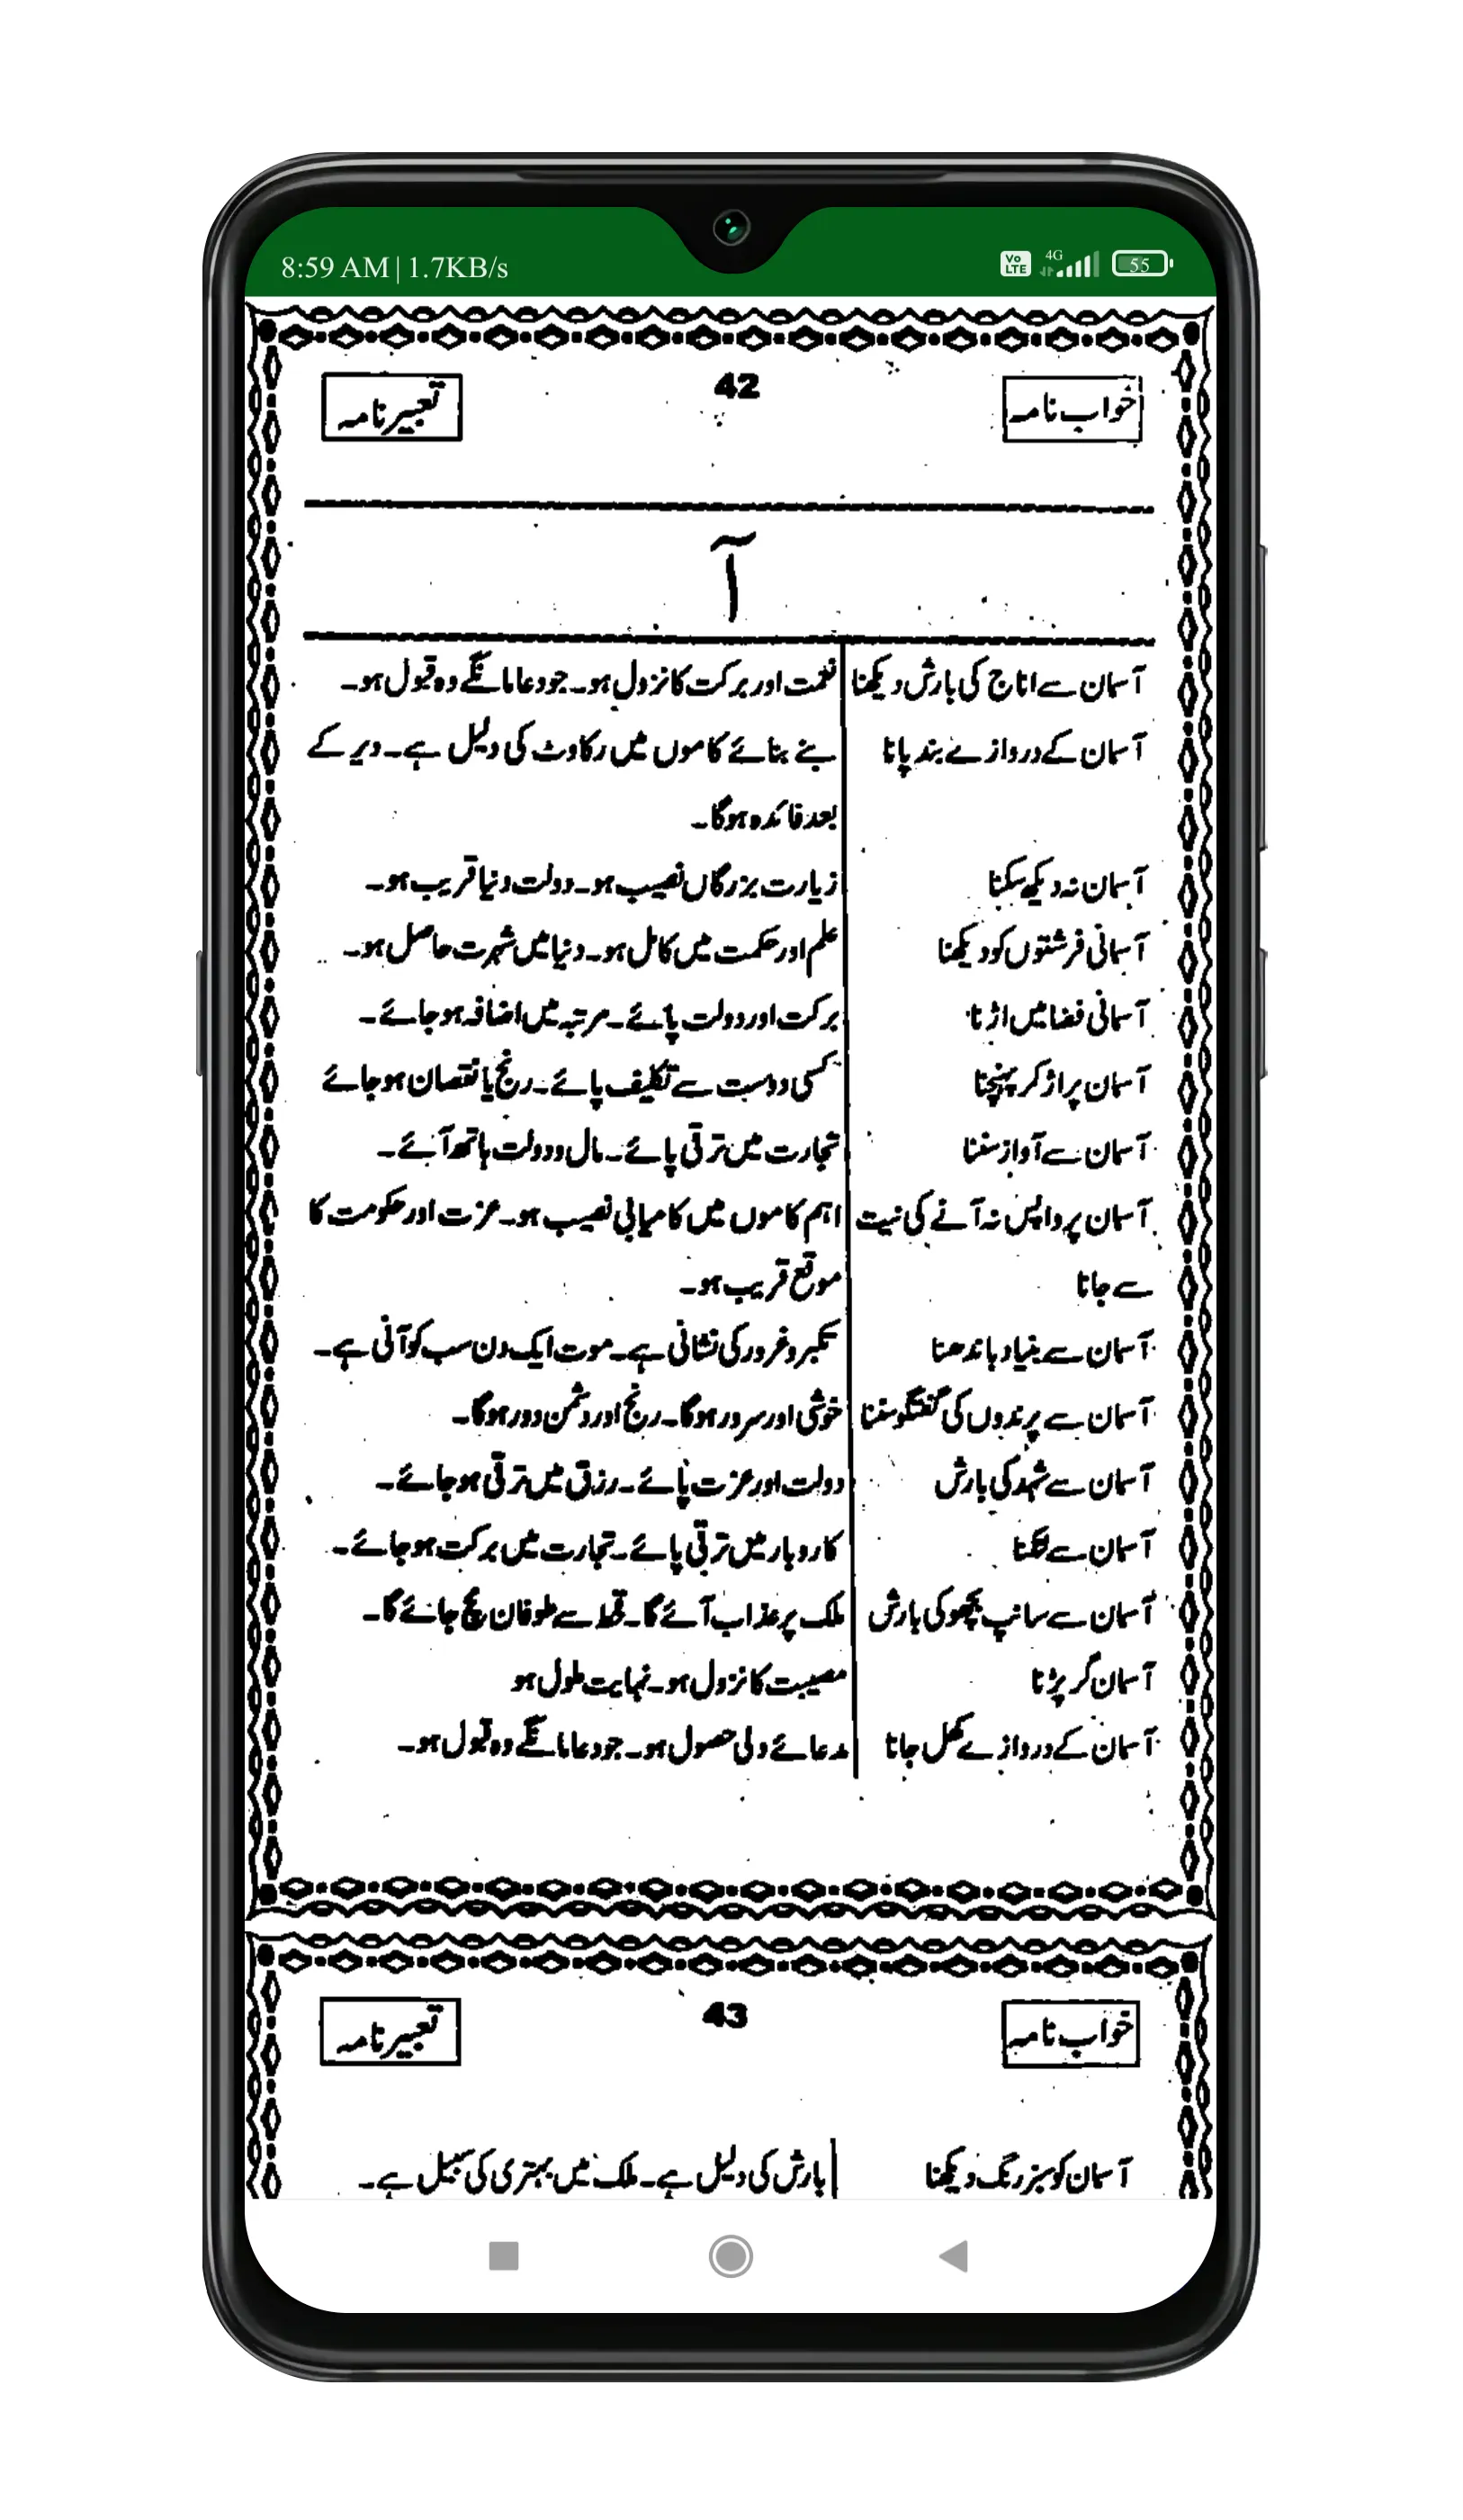 8:59 AM | 1.7KB/s Vo LTE 4G 55
خواب نامہ 42 تعبیر نامہ
آ
آسمان سے اناج کی بارش دیکھنا نعمت اور برکت کا نزول ہو۔ جو دعا مانگے وہ قبول ہو۔
آسمان کے دروازے بند پانا بنے بنائے کاموں میں رکاوٹ کی دلیل ہے۔ دیر کے
بعد فائدہ ہوگا۔
آسمان نہ دیکھ سکنا زیارت بزرگاں نصیب ہو۔ دولت دنیا قریب ہو۔
آسمانی فرشتوں کو دیکھنا علم اور حکمت میں کامل ہو۔ دنیا میں شہرت حاصل ہو۔
آسمانی فضا میں اڑنا برکت اور دولت پائے۔ مرتبہ میں اضافہ ہو جائے۔
آسمان پر اڑ کر پہنچنا کسی دوست سے تکلیف پائے۔ رنج یا نقصان ہو جائے
آسمان سے آواز سننا تجارت میں ترقی پائے۔ مال و دولت ہاتھ آئے۔
آسمان پر واپس نہ آنے کی نیت اہم کاموں میں کامیابی نصیب ہو۔ عزت اور حکومت کا
سے جانا موقع قریب ہو۔
آسمان سے بنیاد باندھنا تکبر و غرور کی نشانی ہے۔ موت ایک دن سب کو آنی ہے۔
آسمان سے پرندوں کی گفتگو سننا خوشی اور سرور ہوگا۔ رنج اور دشمن دور ہوگا۔
آسمان سے شہد کی بارش دولت اور عزت پائے۔ رزق میں ترقی ہو جائے۔
آسمان سے لٹکنا کاروبار میں ترقی پائے۔ تجارت میں برکت ہو جائے۔
آسمان سے سانپ بچھو کی بارش ملک پر عذاب آئے گا۔ قحط سے طوفان مچ جائے گا۔
آسمان گر پڑنا مصیبت کا نزول ہو۔ نہایت ملول ہو
آسمان کے دروازے کھل جانا مدعائے دلی حصول ہو۔ جو دعا مانگے وہ قبول ہو۔
خواب نامہ 43 تعبیر نامہ
آسمان کو سبز رنگ دیکھنا بارش کی دلیل ہے۔ ملک میں بہتری کی سبیل ہے۔